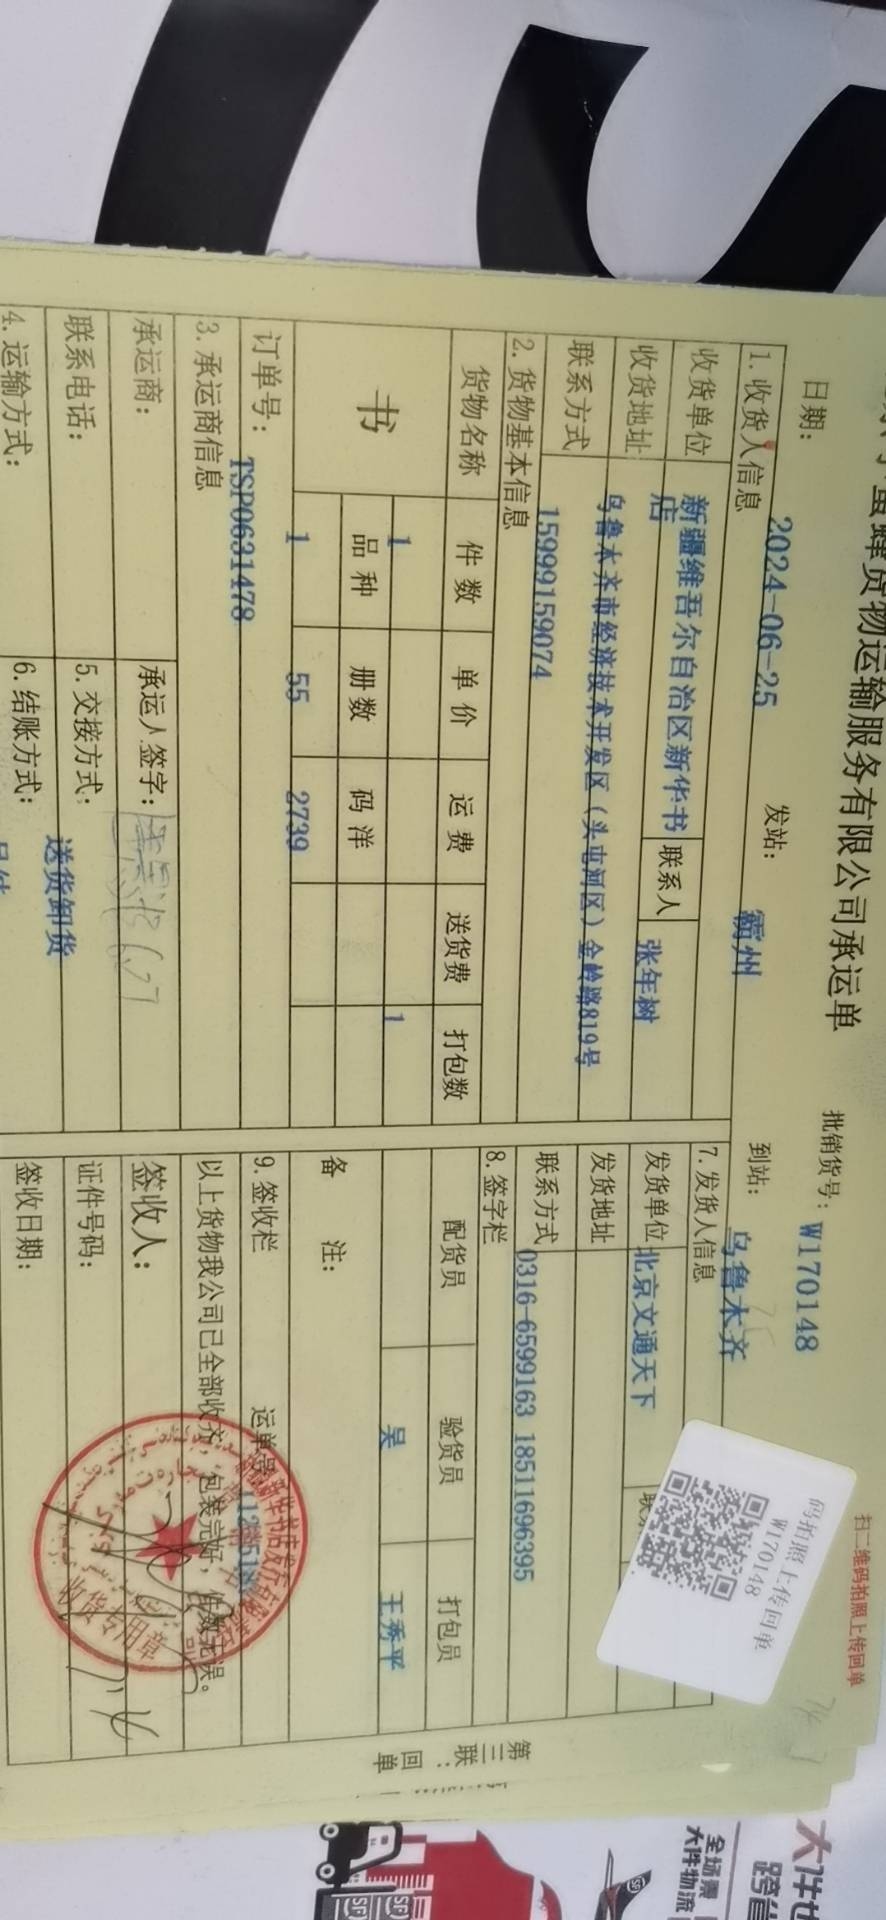 蜜蜂货物运输服务有限公司承运单
扫二维码拍照上传回单
批销货号：W170148
日期：2024-06-25 发站：霸州 到站：乌鲁木齐
码拍照上传回单
W170148
1. 收货人信息
收货单位 新疆维吾尔自治区新华书店 联系人 张年树
收货地址 乌鲁木齐市经济技术开发区（头屯河区）金岭路819号
联系方式 15999159074
2. 货物基本信息
货物名称 件数 单价 运费 送货费 打包数
书 1 1
品种 册数 码洋
1 55 2739
订单号：TSP0631478
3. 承运商信息
承运商： 承运人签字：
联系电话： 5. 交接方式：送货卸货
4. 运输方式： 6. 结账方式：
7. 发货人信息
发货单位 北京文通天下
发货地址
联系方式 0316-6599163 18511696395
8. 签字栏
配货员 验货员 打包员
吴 王秀平
备注：
9. 签收栏 运单号
以上货物我公司已全部收齐，包装完好，件数无误。
签收人：
证件号码：
签收日期：
收货专用章
第三联：回单
大件
跨省
全场景
大件物流
SF
SF
SF